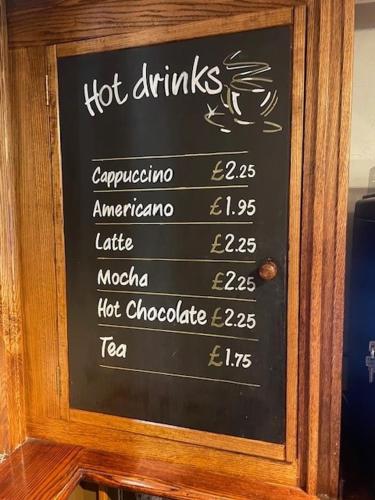 Hot drinks
Cappuccino £2.25
Americano £1.95
Latte £2.25
Mocha £2.25
Hot Chocolate £2.25
Tea £1.75